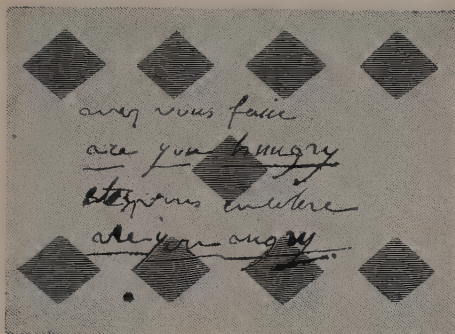 avez vous faim
are you hungry
etes vous en colere
are you angry